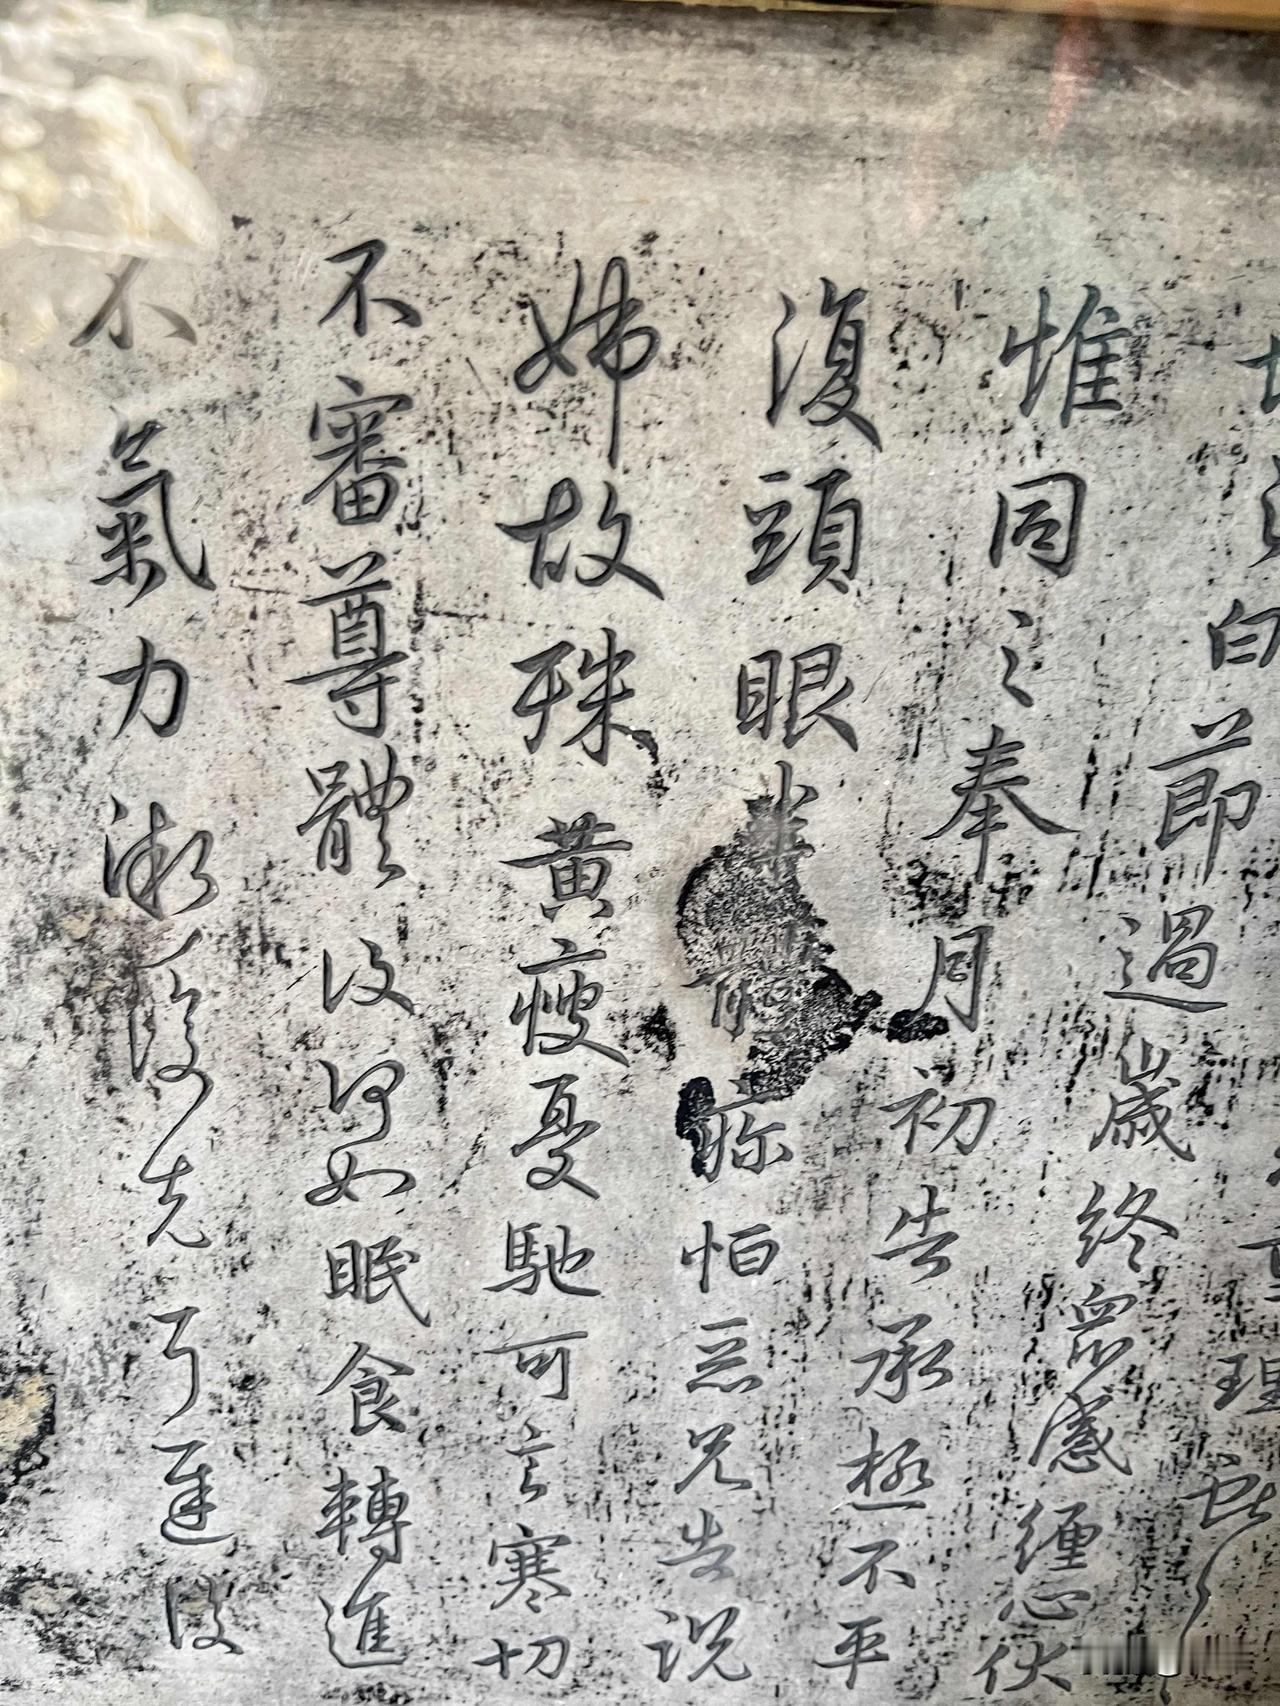 理
白節過歲終衆感纏心伏
惟同之奉月初告承極不平
復頭眼半體疹怕惡兄告說
姊故殊黃瘦憂馳可言寒切
不審尊體復何如眠食轉進
不氣力漸復先